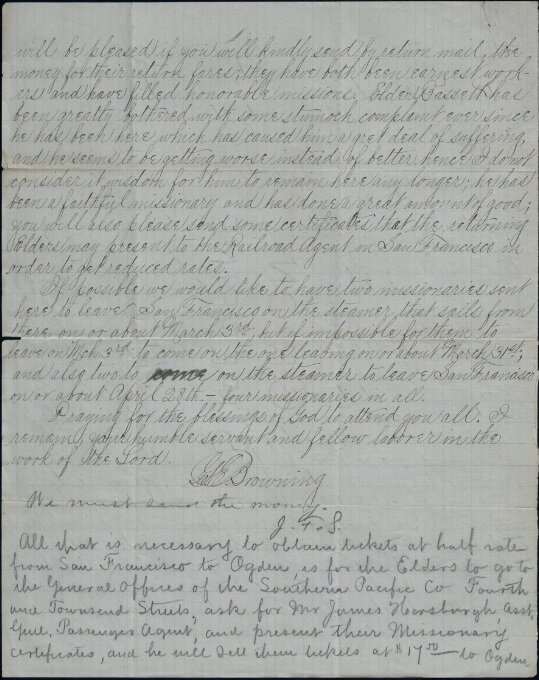 will be pleased if you will kindly send by return mail, the
money for their return fares; they have both been earnest work-
ers and have filled honorable missions. Elder Bassett has
been greatly bothered with some stumach complant ever since
he has been here which has caused him a gret deal of suffering,
and he seems to be getting worse instead of better, hence I do not
consider it wisdom for him to remain here any longer; he has
been a faithful missionary and has done a great amount of good;
you will also please send some certificates that the returning
Elders may present to the Railroad Agent in San Francisco in
order to get reduced rates.
If possible we would like to have two missionaries sent
here to leave San Francisco on the steamer that sails from
there on or about March 3rd; but if impossible for them to
leave on Mch. 3rd to come on the one leading on or about March 31st;
and also two to come on the steamer to leave San Francisco
on or about April 28th. – four missionaries in all.
Praying for the blessings of God to attend you all. I
remain your humble servant and fellow laborer in the
work of the Lord.
Browning
We must send the money.
J. F. S.
All that is necessary to obtain tickets at half rate
from San Francisco to Ogden, is for the Elders to go to
the General Offices of the Southern Pacific Co Fourth
and Townsend Streets, ask for Mr James Horsburgh, Asst.
Genl. Passenger Agent, and present their Missionary
certificates, and he will sell them tickets at $17.50 to Ogden